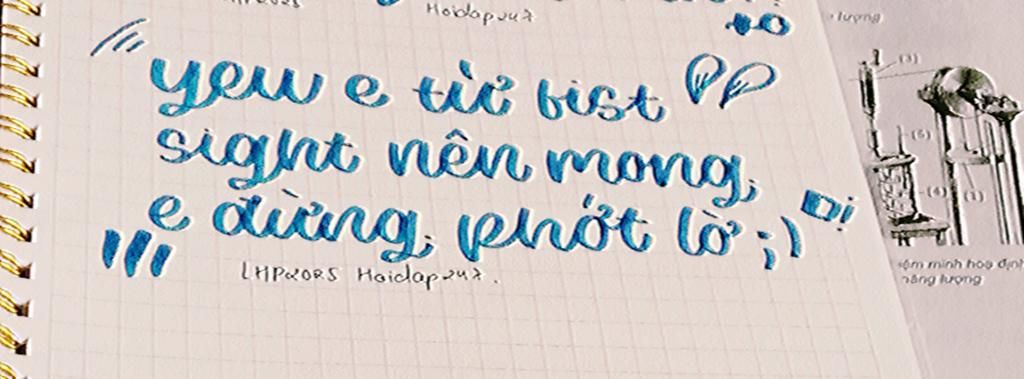 Hoidap247
lượng
yew e từ fist
sight nên mong
e đừng phớt lờ ;)
LHP2025 Hoidap247.
(3)
(5)
(4)
minh hoạ định
năng lượng